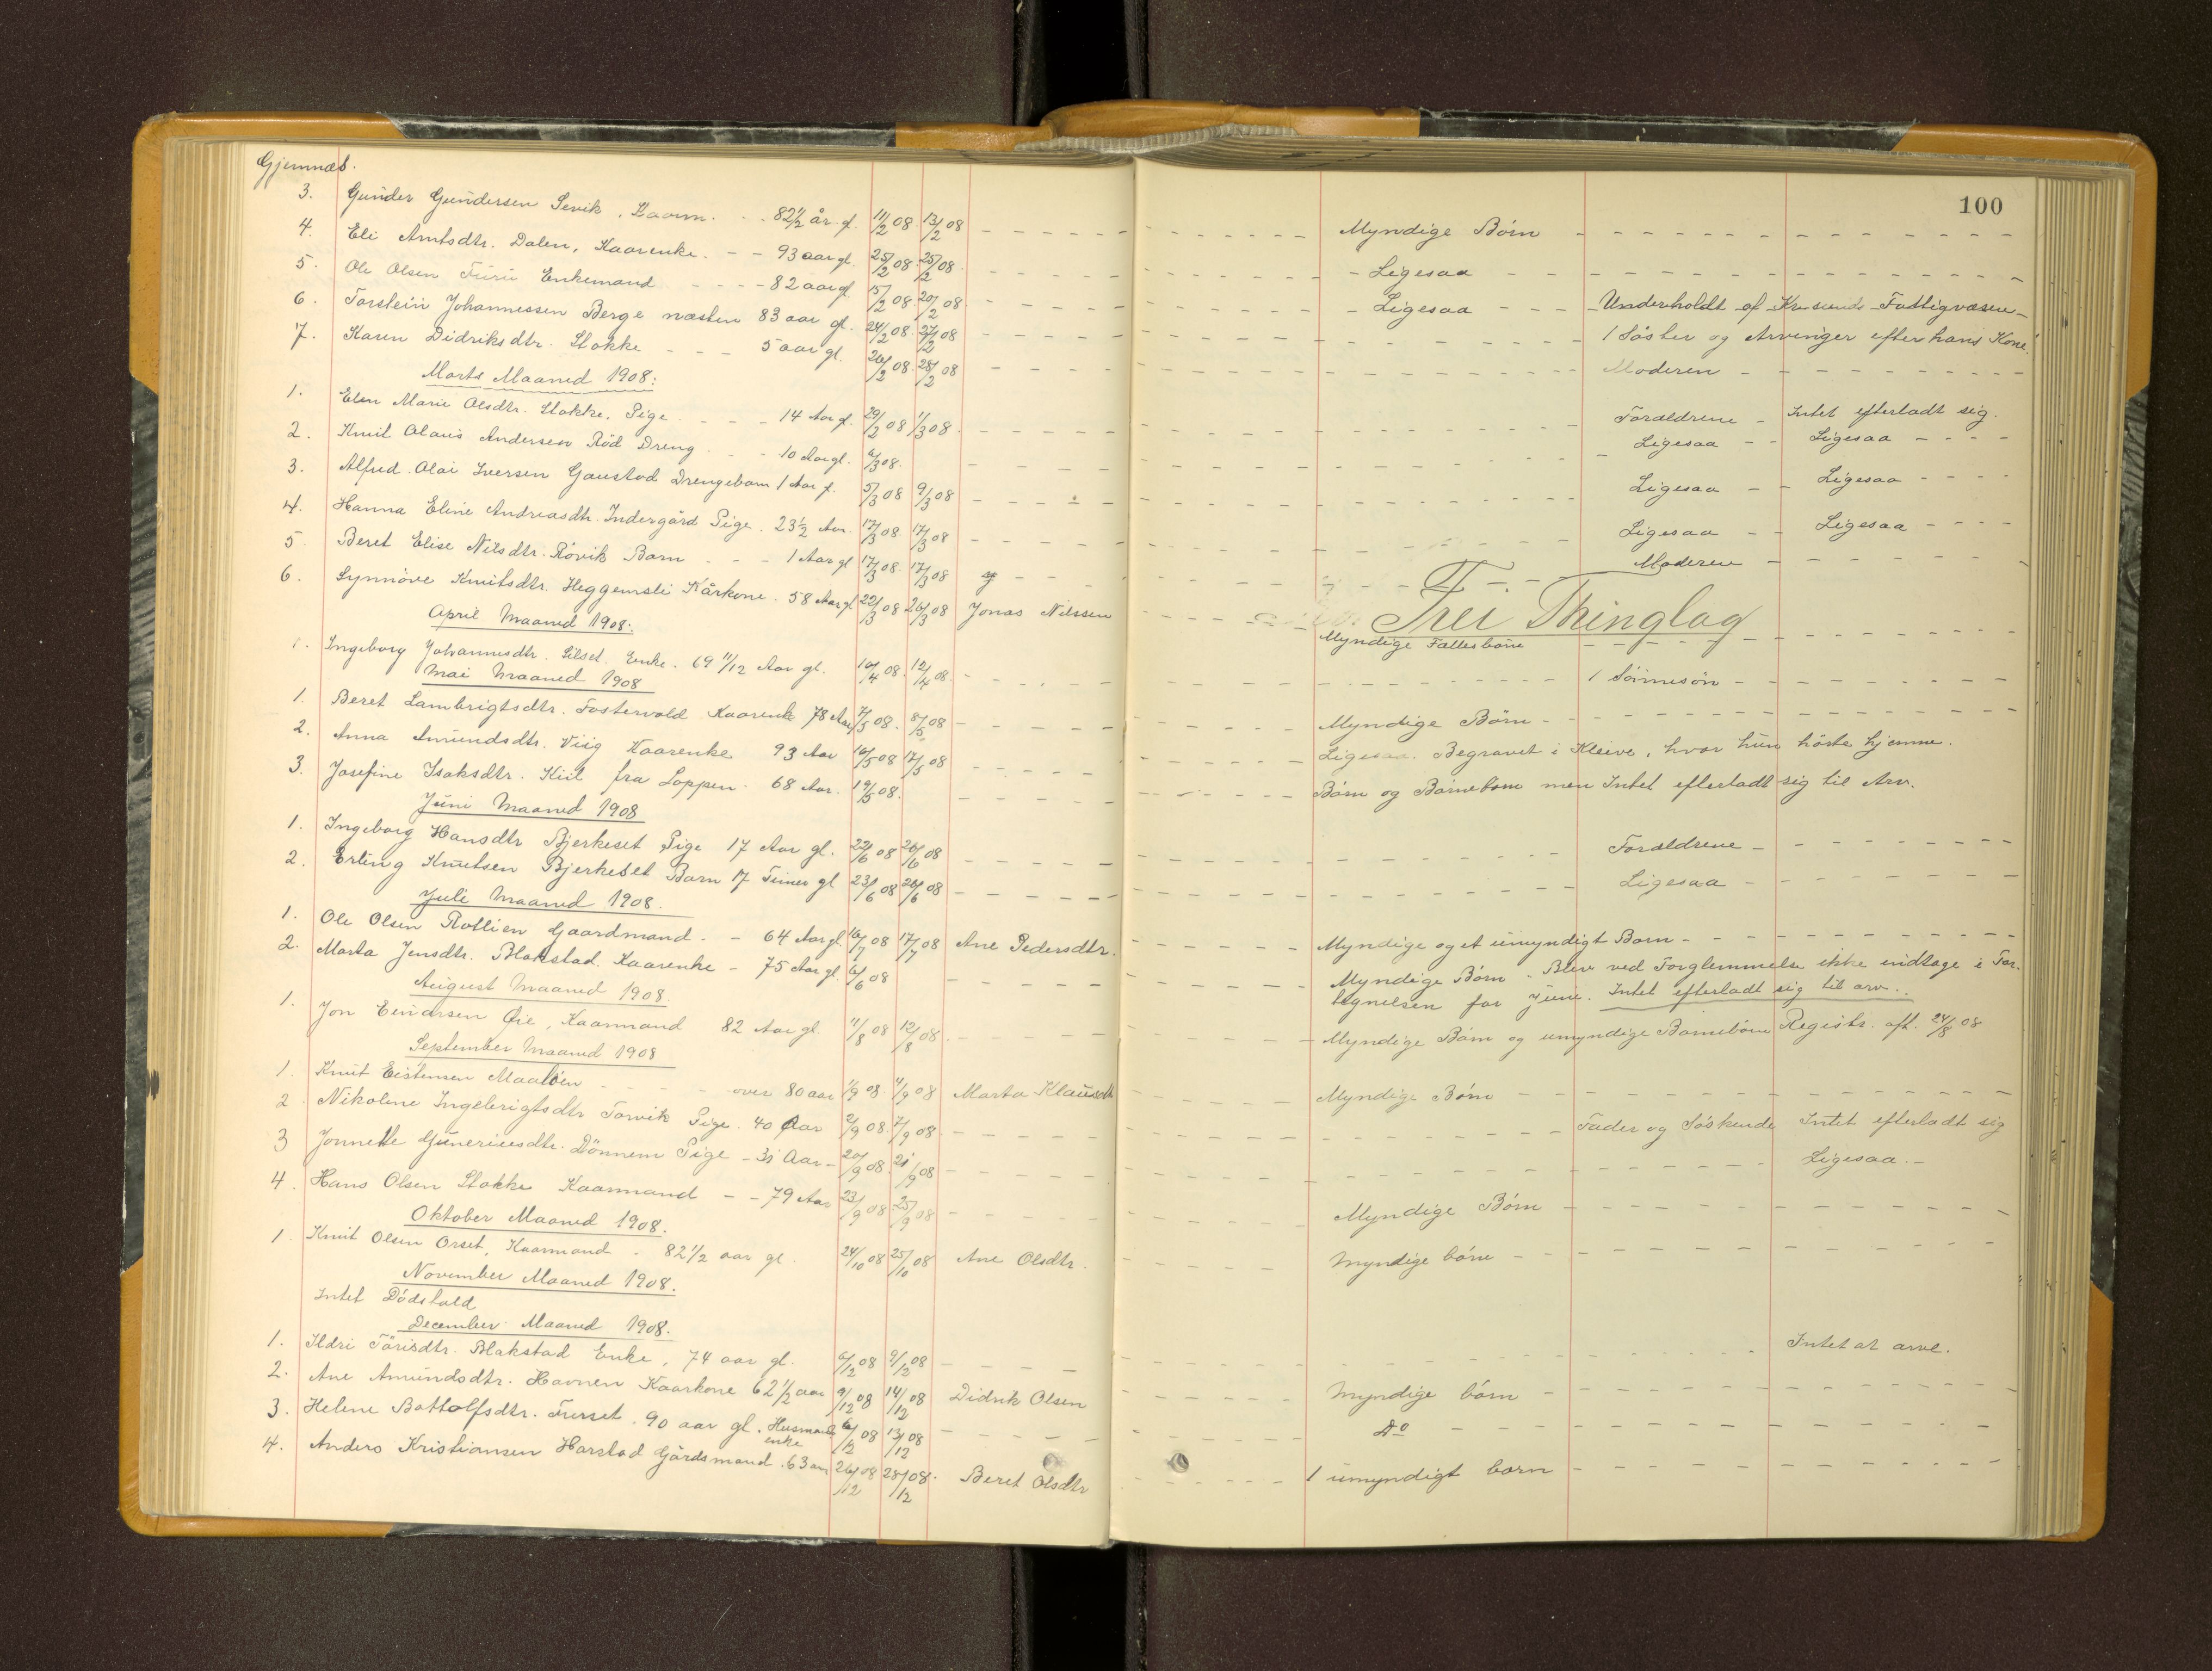 Gjemnæs.
100
3. Gunder Gundersen Sevik, Kaarm. - - 82 1/2 år. gl. 11/2 08. 13/2 08 - - - Myndige Börn - - -
4. Eli Arntsdtr. Dalen, Kaarenke. - - 93 aar gl. 25/2 08. 25/2 08. - - - Ligesaa - - -
5. Ole Olsen Furu Enkemand - - - - 82 aar gl. 15/2 08. 20/2 08 - - - Ligesaa - - - Underholdt af Kr-sunds Fattigvæsen -
6. Torstein Johannessen Berge næsten 83 aar gl. 24/2 08. 27/2 08 - - - 1 Söster og Arvinger efter hans Kone.
7. Karen Didriksdtr. Stokke - - - 5 aar gl. 26/2 08. 28/2 08 - - - Moderen - - -
Marts Maaned 1908:
1. Elen Marie Olsdtr. Stokke. Pige - - - 14 Aar gl. 29/2 08 1/3 08. - - - Forældrene - Intet efterladt sig.
2. Knut Olaus Andersen Röd Dreng - - - 10 Aar gl. 6/3 08. - - - Ligesaa - - Ligesaa - - -
3. Alfred Olai Iversen Gaustad Drengebarn 1 Aar gl. 5/3 08 9/3 08 - - - Ligesaa - - Ligesaa - - -
4. Hanna Eline Andreasdtr. Indergård Pige. 23 1/2 Aar. 17/3 08. 17/3 08 - - - Ligesaa - - Ligesaa - - -
5. Beret Elise Nilsdtr. Rövik Barn - - 1 Aar gl 17/3 08. 17/3 08 - - - Moderen - - -
6. Synnöve Knutsdtr. Heggemsli Kårkone. 58 Aar gl 22/3 08 26/3 08 Jonas Nilssen - - - Myndige Fællesbörn - - -
Frei Thinglag
April Maaned 1908:
1. Ingeborg Johannesdtr. Silset. Enke. 69 11/12 Aar gl. 10/4 08. 12/4 08. - - - 1 Sönnesön - - -
Mai Maaned 1908
1. Beret Lambrigtsdtr. Fostervold Kaarenk 78 Aar 7/5 08. 8/5 08 - - - Myndige Börn - - -
2. Anna Amundsdtr. Viig Kaarenke 93 Aar 16/5 08 17/5 08 - - - Ligesaa. Begravet i Kleive, hvor hun hörte hjemme.
3. Josefine Isaksdtr. Kiil fra Loppen. 68 Aar. 19/5 08. - - - Börn og Börnebörn men Intet efterladt sig til Arv.
Juni Maaned 1908
1. Ingeborg Hansdtr Bjerkeset Pige 17 Aar gl. 22/6 08 26/6 08 - - - Forældrene - - -
2. Erling Knutsen Bjerkeset Barn 17 Timer gl 23/6 08 26/6 08 - - - Ligesaa - - -
Juli Maaned 1908.
1. Ole Olsen Rotlien Gaardmand. - 64 Aar gl. 16/7 08 17/7 08 Ane Pedersdtr. - - - Myndige og et umyndigt Barn - - -
2. Marta Jensdtr. Blakstad. Kaarenke - 75 Aar gl. 6/6 08 - - - Myndige Börn - Blev ved Forglemmelse ikke indtage i For-
tegnelsen for Juni. Intet efterladt sig til arv..
August Maaned 1908.
1. Jon Einarsen Öie, Kaarmand 82 Aar gl 11/8 08 12/8 08. - - - Myndige Börn og umyndige Börnebörn Registr. aft. 24/8 08
September Maaned 1908
1. Knut Eistensen - - - over 80 aar 1/9 08 4/9 08 Marta Klausdt - - - Myndige Börn - - -
2 Nikoline Ingebrigtsdtr Torvik Pige. 40 Aar 2/9 08. 7/9 08. - - - Fader og Söskende Intet efterladt sig
3 Jonnette Gunneriusdtr. Dönnem Pige - 31 Aar - 20/9 08. 21/9 08 - - - Ligesaa. -
4. Hans Olsen Stokke Kaarmand - - 79 Aar 23/9 08 25/9 08 - - - Myndige Börn - - -
Oktober Maaned 1908.
1. Knut Olsen Orset, Kaarmand - 82 1/2 aar gl. 24/10 08 25/10 08 Ane Olsdtr. - - - Myndige börn - - -
November Maaned 1908.
Intet Dödsfald
December Maaned 1908.
1. Ildri Tårisdtr. Blakstad Enke, 74 aar gl. 6/12 08 9/12 08 - - - Intet at arve.
2. Ane Amundsdtr. Havnen Kaarkone 62 1/2 aar 9/12 08 14/12 08 Didrik Olsen - - - Myndige börn - - -
3. Helene Bottolfsdtr. Furset. 90 aar gl. Husmands enke 6/12 08 13/12 08 - - - do - - -
4. Anders Kristiansen Harstad Gårdsmand. 63 aar 26/12 08 28/12 08. Beret Olsdtr - - - 1 umyndigt barn - - -